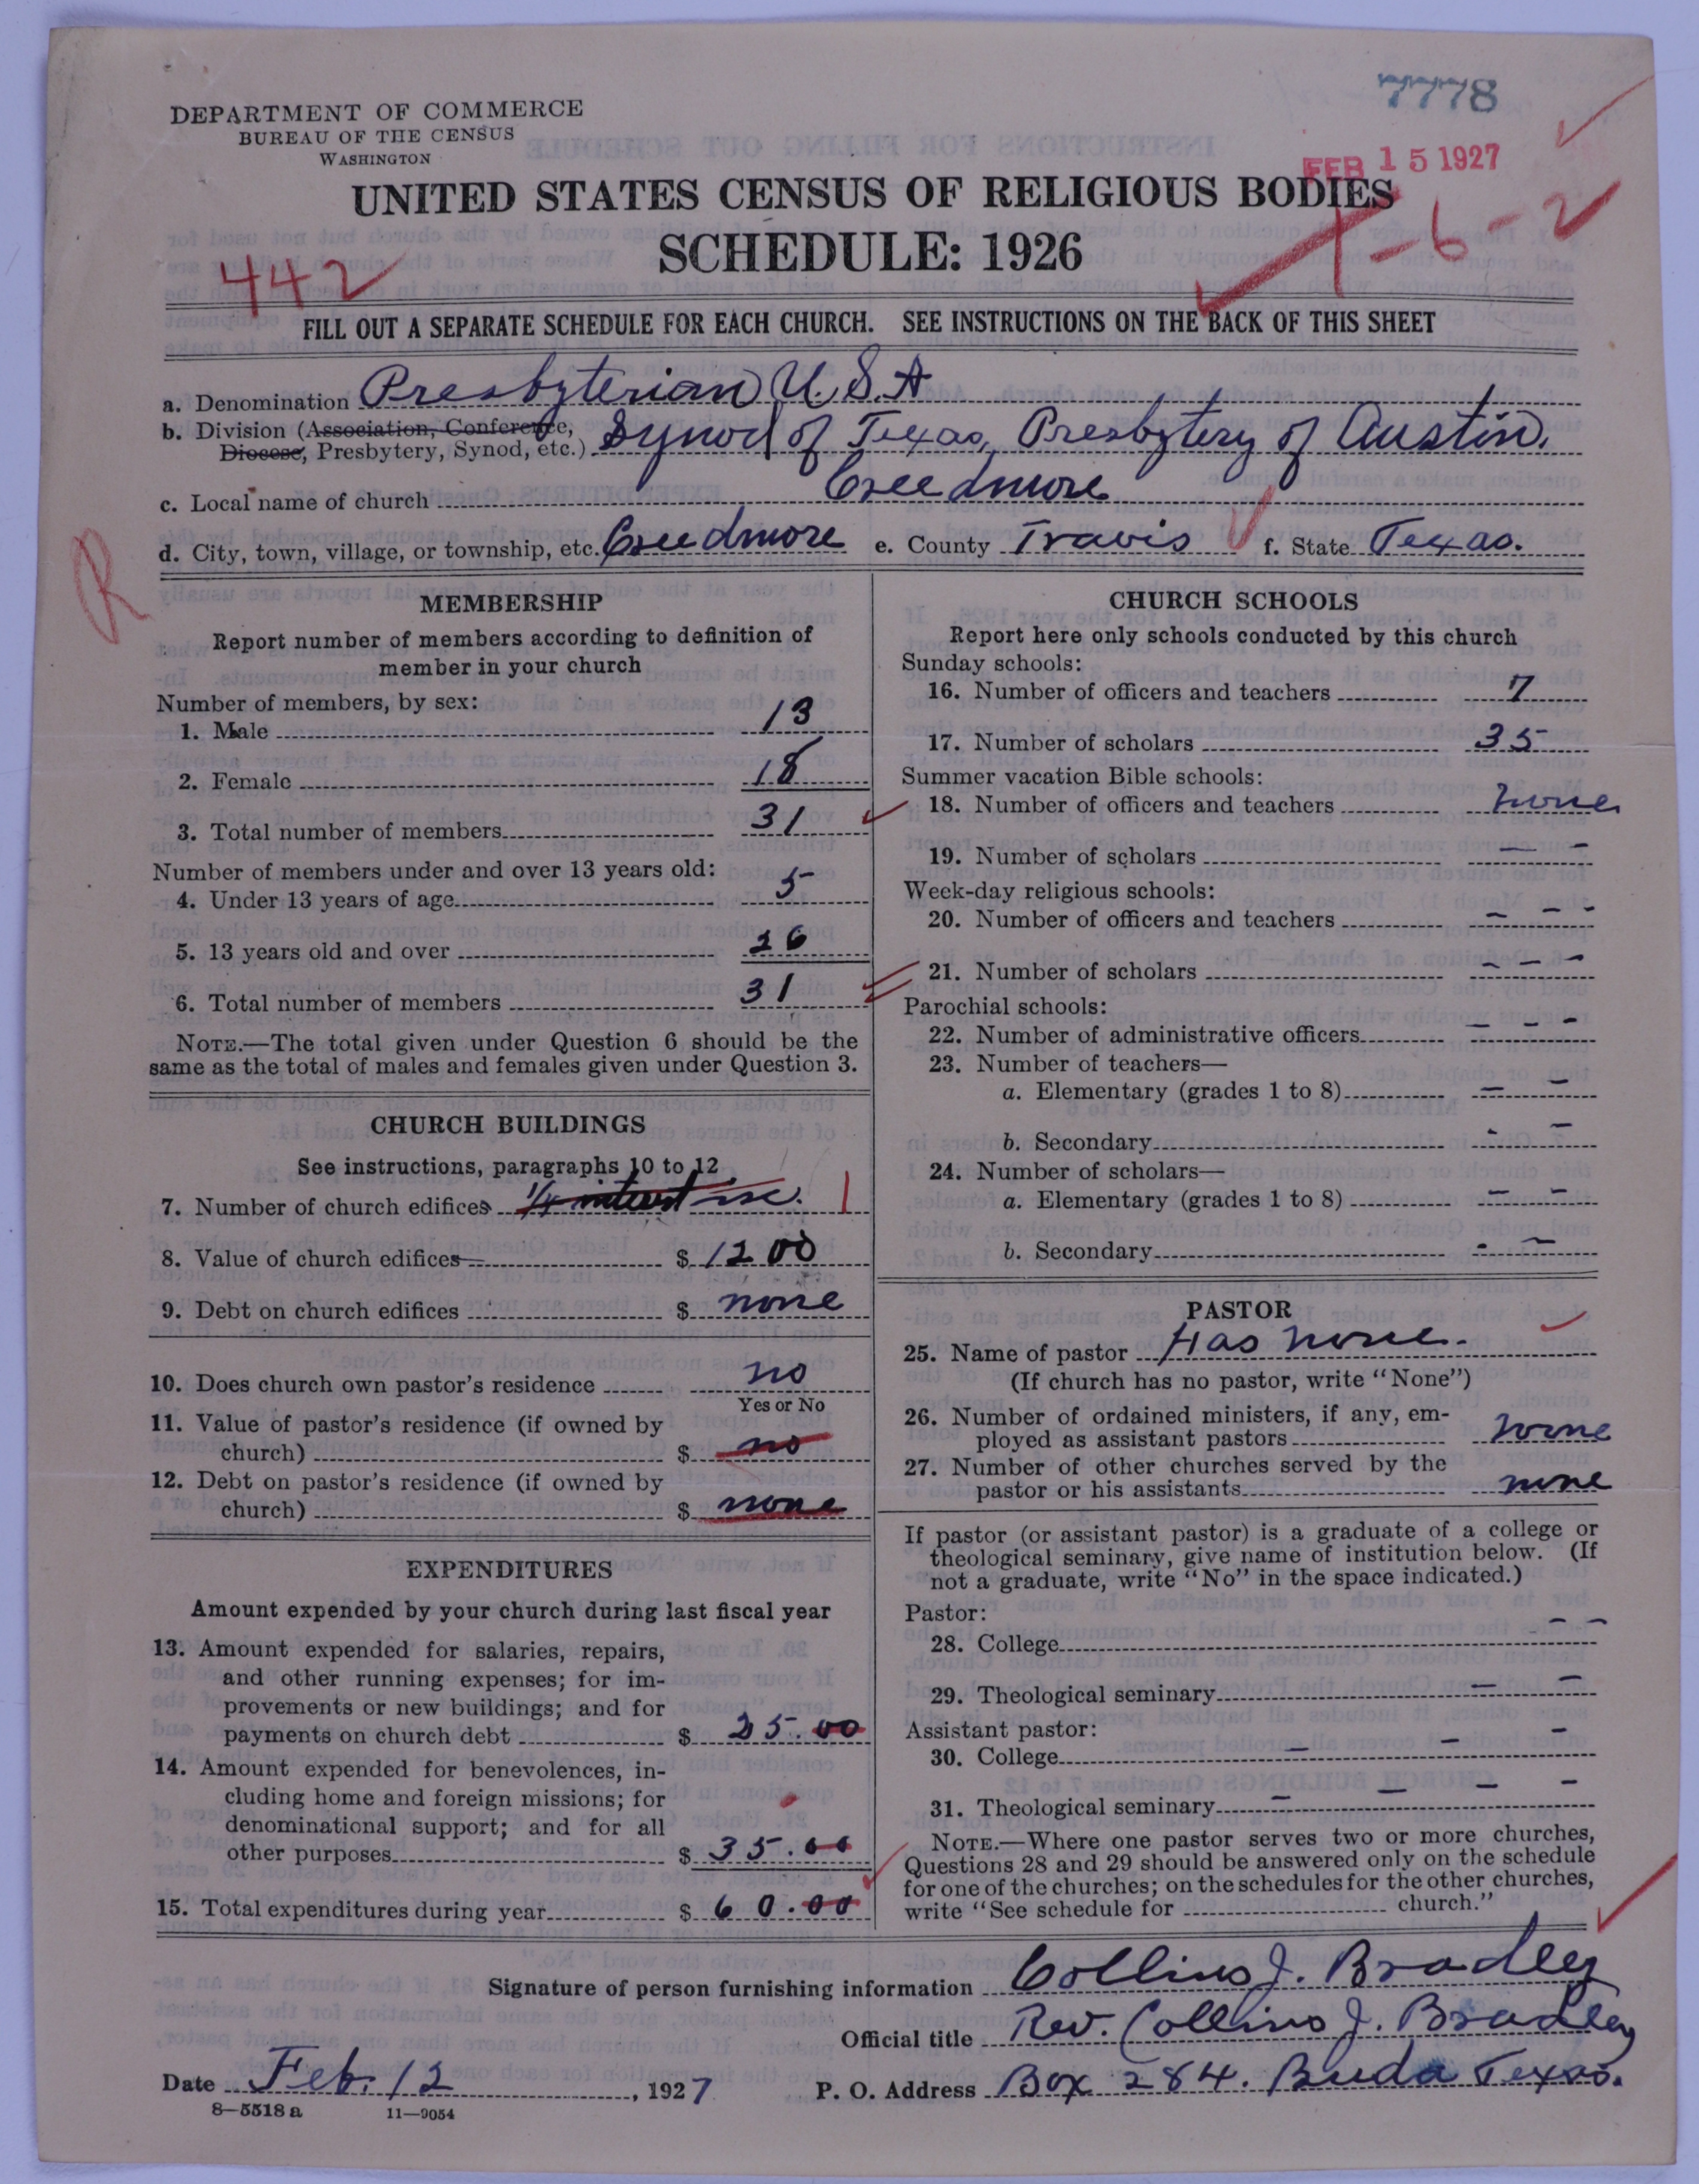 7778
DEPARTMENT OF COMMERCE
BUREAU OF THE CENSUS
WASHINGTON
FEB 15 1927
UNITED STATES CENSUS OF RELIGIOUS BODIES
SCHEDULE: 1926
442
1-6-2
FILL OUT A SEPARATE SCHEDULE FOR EACH CHURCH. SEE INSTRUCTIONS ON THE BACK OF THIS SHEET
a. Denomination Presbyterian U.S.A
b. Division (Association, Conference,
Diocese, Presbytery, Synod, etc.) Synod of Texas, Presbytery of Austin.
c. Local name of church Creedmore
d. City, town, village, or township, etc. Creedmore e. County Travis f. State Texas.
R
MEMBERSHIP
Report number of members according to definition of
member in your church
Number of members, by sex:
1. Male 13
2. Female 18
3. Total number of members 31
Number of members under and over 13 years old:
4. Under 13 years of age 5
5. 13 years old and over 26
6. Total number of members 31
NOTE.—The total given under Question 6 should be the
same as the total of males and females given under Question 3.
CHURCH BUILDINGS
See instructions, paragraphs 10 to 12
7. Number of church edifices 1/4 interest 1
8. Value of church edifices $ 1200
9. Debt on church edifices $ none
10. Does church own pastor's residence no
Yes or No
11. Value of pastor's residence (if owned by
church) $ no
12. Debt on pastor's residence (if owned by
church) $ none
EXPENDITURES
Amount expended by your church during last fiscal year
13. Amount expended for salaries, repairs,
and other running expenses; for im-
provements or new buildings; and for
payments on church debt $ 25.00
14. Amount expended for benevolences, in-
cluding home and foreign missions; for
denominational support; and for all
other purposes $ 35.00
15. Total expenditures during year $ 60.00
CHURCH SCHOOLS
Report here only schools conducted by this church
Sunday schools:
16. Number of officers and teachers 7
17. Number of scholars 35
Summer vacation Bible schools:
18. Number of officers and teachers none
19. Number of scholars — -
Week-day religious schools:
20. Number of officers and teachers - - -
21. Number of scholars - - -
Parochial schools:
22. Number of administrative officers - - -
23. Number of teachers—
a. Elementary (grades 1 to 8) — -
b. Secondary - —
24. Number of scholars—
a. Elementary (grades 1 to 8) - -
b. Secondary - —
PASTOR
25. Name of pastor Has none.
(If church has no pastor, write "None")
26. Number of ordained ministers, if any, em-
ployed as assistant pastors none
27. Number of other churches served by the
pastor or his assistants none
If pastor (or assistant pastor) is a graduate of a college or
theological seminary, give name of institution below. (If
not a graduate, write "No" in the space indicated.)
Pastor:
28. College - -
29. Theological seminary — -
Assistant pastor:
30. College - - -
31. Theological seminary - - - -
NOTE.—Where one pastor serves two or more churches,
Questions 28 and 29 should be answered only on the schedule
for one of the churches; on the schedules for the other churches,
write "See schedule for church."
Signature of person furnishing information Collins J. Bradley
Official title Rev. Collins J. Bradley
Date Feb. 12, 1927 P. O. Address Box 284. Buda Texas.
8—5518 a 11—9054